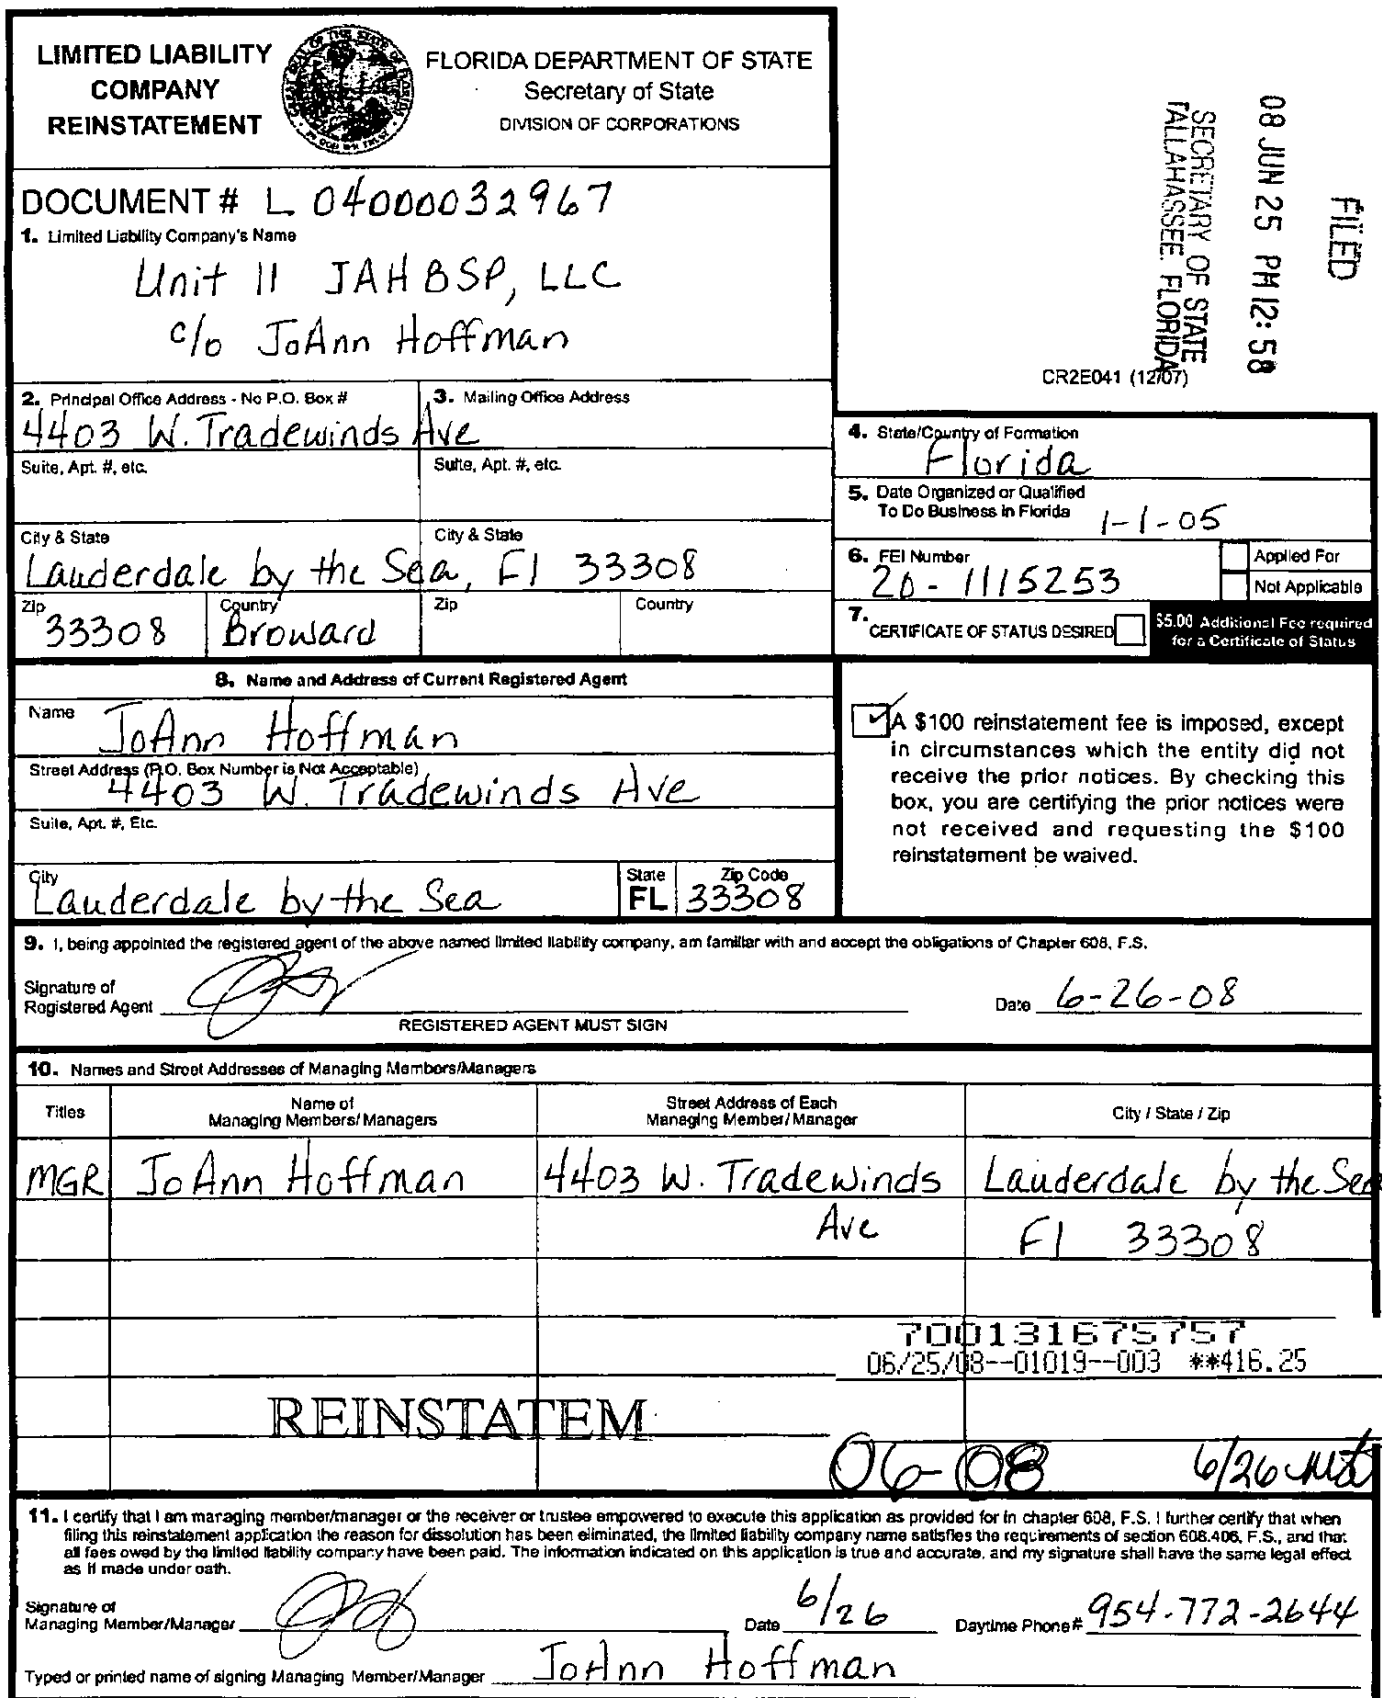 LIMITED LIABILITY
COMPANY
REINSTATEMENT
FLORIDA DEPARTMENT OF STATE
Secretary of State
DIVISION OF CORPORATIONS
FILED
08 JUN 25 PM 12:58
SECRETARY OF STATE
TALLAHASSEE. FLORIDA
CR2E041 (12/07)
DOCUMENT # L 04000032967
1. Limited Liability Company's Name
Unit 11 JAHBSP, LLC
c/o JoAnn Hoffman
2. Principal Office Address - No P.O. Box #
3. Mailing Office Address
4403 W. Tradewinds Ave
Suite, Apt. #, etc.
Suite, Apt. #, etc.
City & State
City & State
Lauderdale by the Sea, Fl 33308
Zip
33308
Country
Broward
Zip
Country
4. State/Country of Formation
Florida
5. Date Organized or Qualified
To Do Business in Florida
1-1-05
6. FEI Number
20-1115253
Applied For
Not Applicable
7. CERTIFICATE OF STATUS DESIRED
$5.00 Additional Fee required
for a Certificate of Status
8. Name and Address of Current Registered Agent
Name
JoAnn Hoffman
Street Address (P.O. Box Number is Not Acceptable)
4403 W. Tradewinds Ave
Suite, Apt. #, Etc.
City
Lauderdale by the Sea
State
FL
Zip Code
33308
A $100 reinstatement fee is imposed, except
in circumstances which the entity did not
receive the prior notices. By checking this
box, you are certifying the prior notices were
not received and requesting the $100
reinstatement be waived.
9. I, being appointed the registered agent of the above named limited liability company, am familiar with and accept the obligations of Chapter 608, F.S.
Signature of
Registered Agent
REGISTERED AGENT MUST SIGN
Date 6-26-08
10. Names and Street Addresses of Managing Members/Managers
Titles
Name of
Managing Members/Managers
Street Address of Each
Managing Member/Manager
City / State / Zip
MGR JoAnn Hoffman 4403 W. Tradewinds Lauderdale by the Sea
Ave Fl 33308
700131675757
06/25/08--01019--003 **416.25
REINSTATEM
06-08
6/26
11. I certify that I am managing member/manager or the receiver or trustee empowered to execute this application as provided for in chapter 608, F.S. I further certify that when
filing this reinstatement application the reason for dissolution has been eliminated, the limited liability company name satisfies the requirements of section 608.406, F.S., and that
all fees owed by the limited liability company have been paid. The information indicated on this application is true and accurate, and my signature shall have the same legal effect
as if made under oath.
Signature of
Managing Member/Manager
Date 6/26
Daytime Phone # 954-772-2644
Typed or printed name of signing Managing Member/Manager JoAnn Hoffman